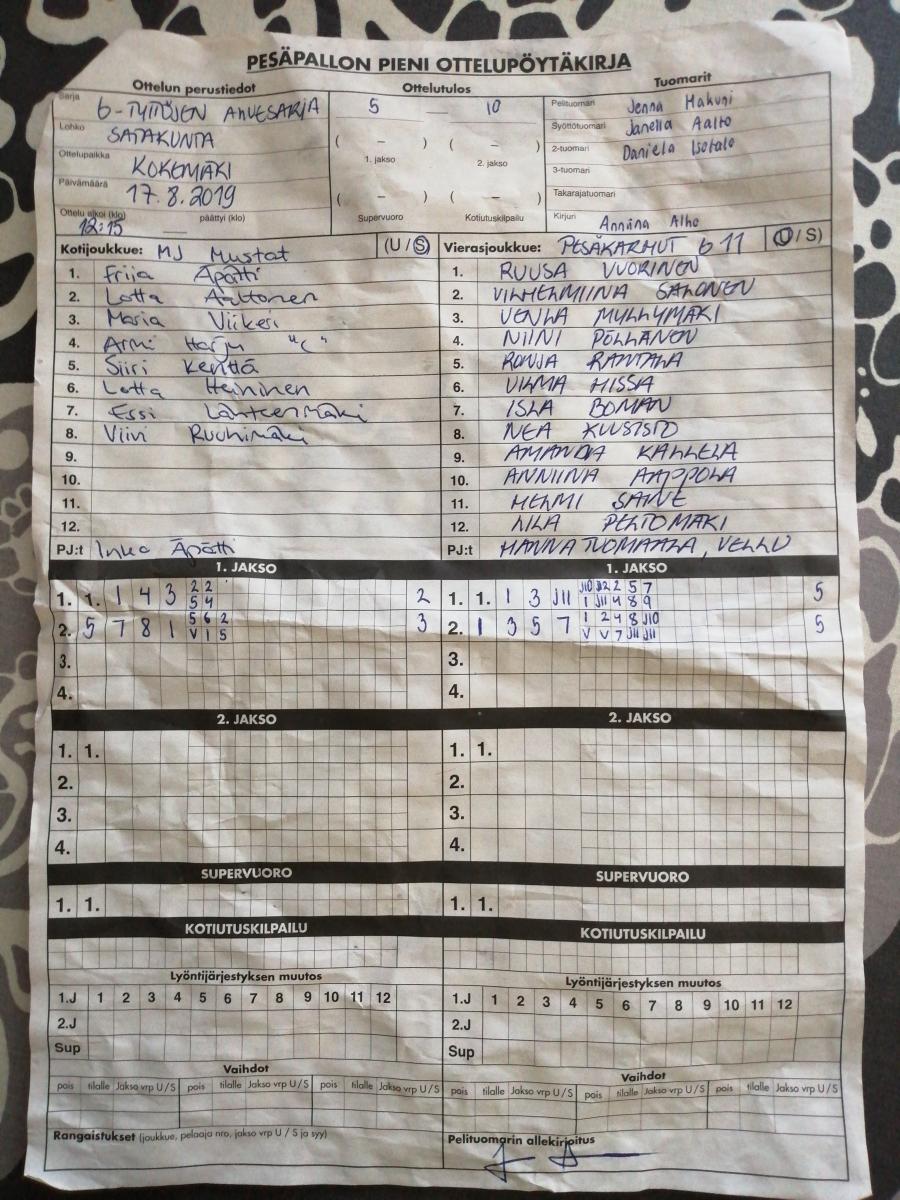 PESÄPALLON PIENI OTTELUPÖYTÄKIRJA
Ottelun perustiedot
Ottelutulos
Tuomarit
Sarja 6-TYTTÖJEN ALUESARJA
Lohko SATAKUNTA
Ottelupaikka KOKEMÄKI
Päivämäärä 17.8.2019
Ottelu alkoi (klo) 12:15 päättyi (klo)
5 — 10
( – ) ( – )
1. jakso 2. jakso
( – ) ( – )
Supervuoro Kotiutuskilpailu
Pelituomari Jenna Hakuni
Syöttötuomari Janella Aalto
2-tuomari Daniela Isotalo
3-tuomari
Takarajatuomari
Kirjuri Anniina Alho
Kotijoukkue: MJ Mustat (U / S)
1. Frija Äpätti
2. Lotta Anttonen
3. Maria Viikeri
4. Armi Harju "C"
5. Siiri Kenttä
6. Lotta Heininen
7. Essi Lähteenmäki
8. Viivi Ruohimäki
9.
10.
11.
12.
PJ:t Inka Äpätti
Vierasjoukkue: PESÄKARHUT 6 11 (U / S)
1. RUUSA VUORINEN
2. VILHELMIINA SALONEN
3. VENLA MYLLYMÄKI
4. NIINI PÖLLÄNEN
5. RONJA RANTALA
6. VILMA HISSA
7. ISLA BOMAN
8. NEA KUUSISTO
9. AMANDA KALLELA
10. ANNIINA AAPPOLA
11. HELMI SAINE
12. LILA PELTOMÄKI
PJ:t HANNA TUOMAALA, VELLU
1. JAKSO
1. 1. 1 4 3 2 2 2
5 4
2. 5 7 8 1 5 6 2 3
V 1 5
3.
4.
1. JAKSO
1. 1. 1 3 J11 J10 J12 2 5 7 5
1 J11 4 8 9
2. 1 3 5 7 1 2 4 8 J10 5
V V 7 J11 J11
3.
4.
2. JAKSO
1. 1.
2.
3.
4.
2. JAKSO
1. 1.
2.
3.
4.
SUPERVUORO
1. 1.
SUPERVUORO
1. 1.
KOTIUTUSKILPAILU
KOTIUTUSKILPAILU
Lyöntijärjestyksen muutos
1.J 1 2 3 4 5 6 7 8 9 10 11 12
2.J
Sup
Lyöntijärjestyksen muutos
1.J 1 2 3 4 5 6 7 8 9 10 11 12
2.J
Sup
Vaihdot
pois tilalle Jakso vrp U/S pois tilalle Jakso vrp U/S pois tilalle Jakso vrp U/S
Vaihdot
pois tilalle Jakso vrp U/S pois tilalle Jakso vrp U/S pois tilalle Jakso vrp U/S
Rangaistukset (joukkue, pelaaja nro, jakso vrp U / S ja syy)
Pelituomarin allekirjoitus